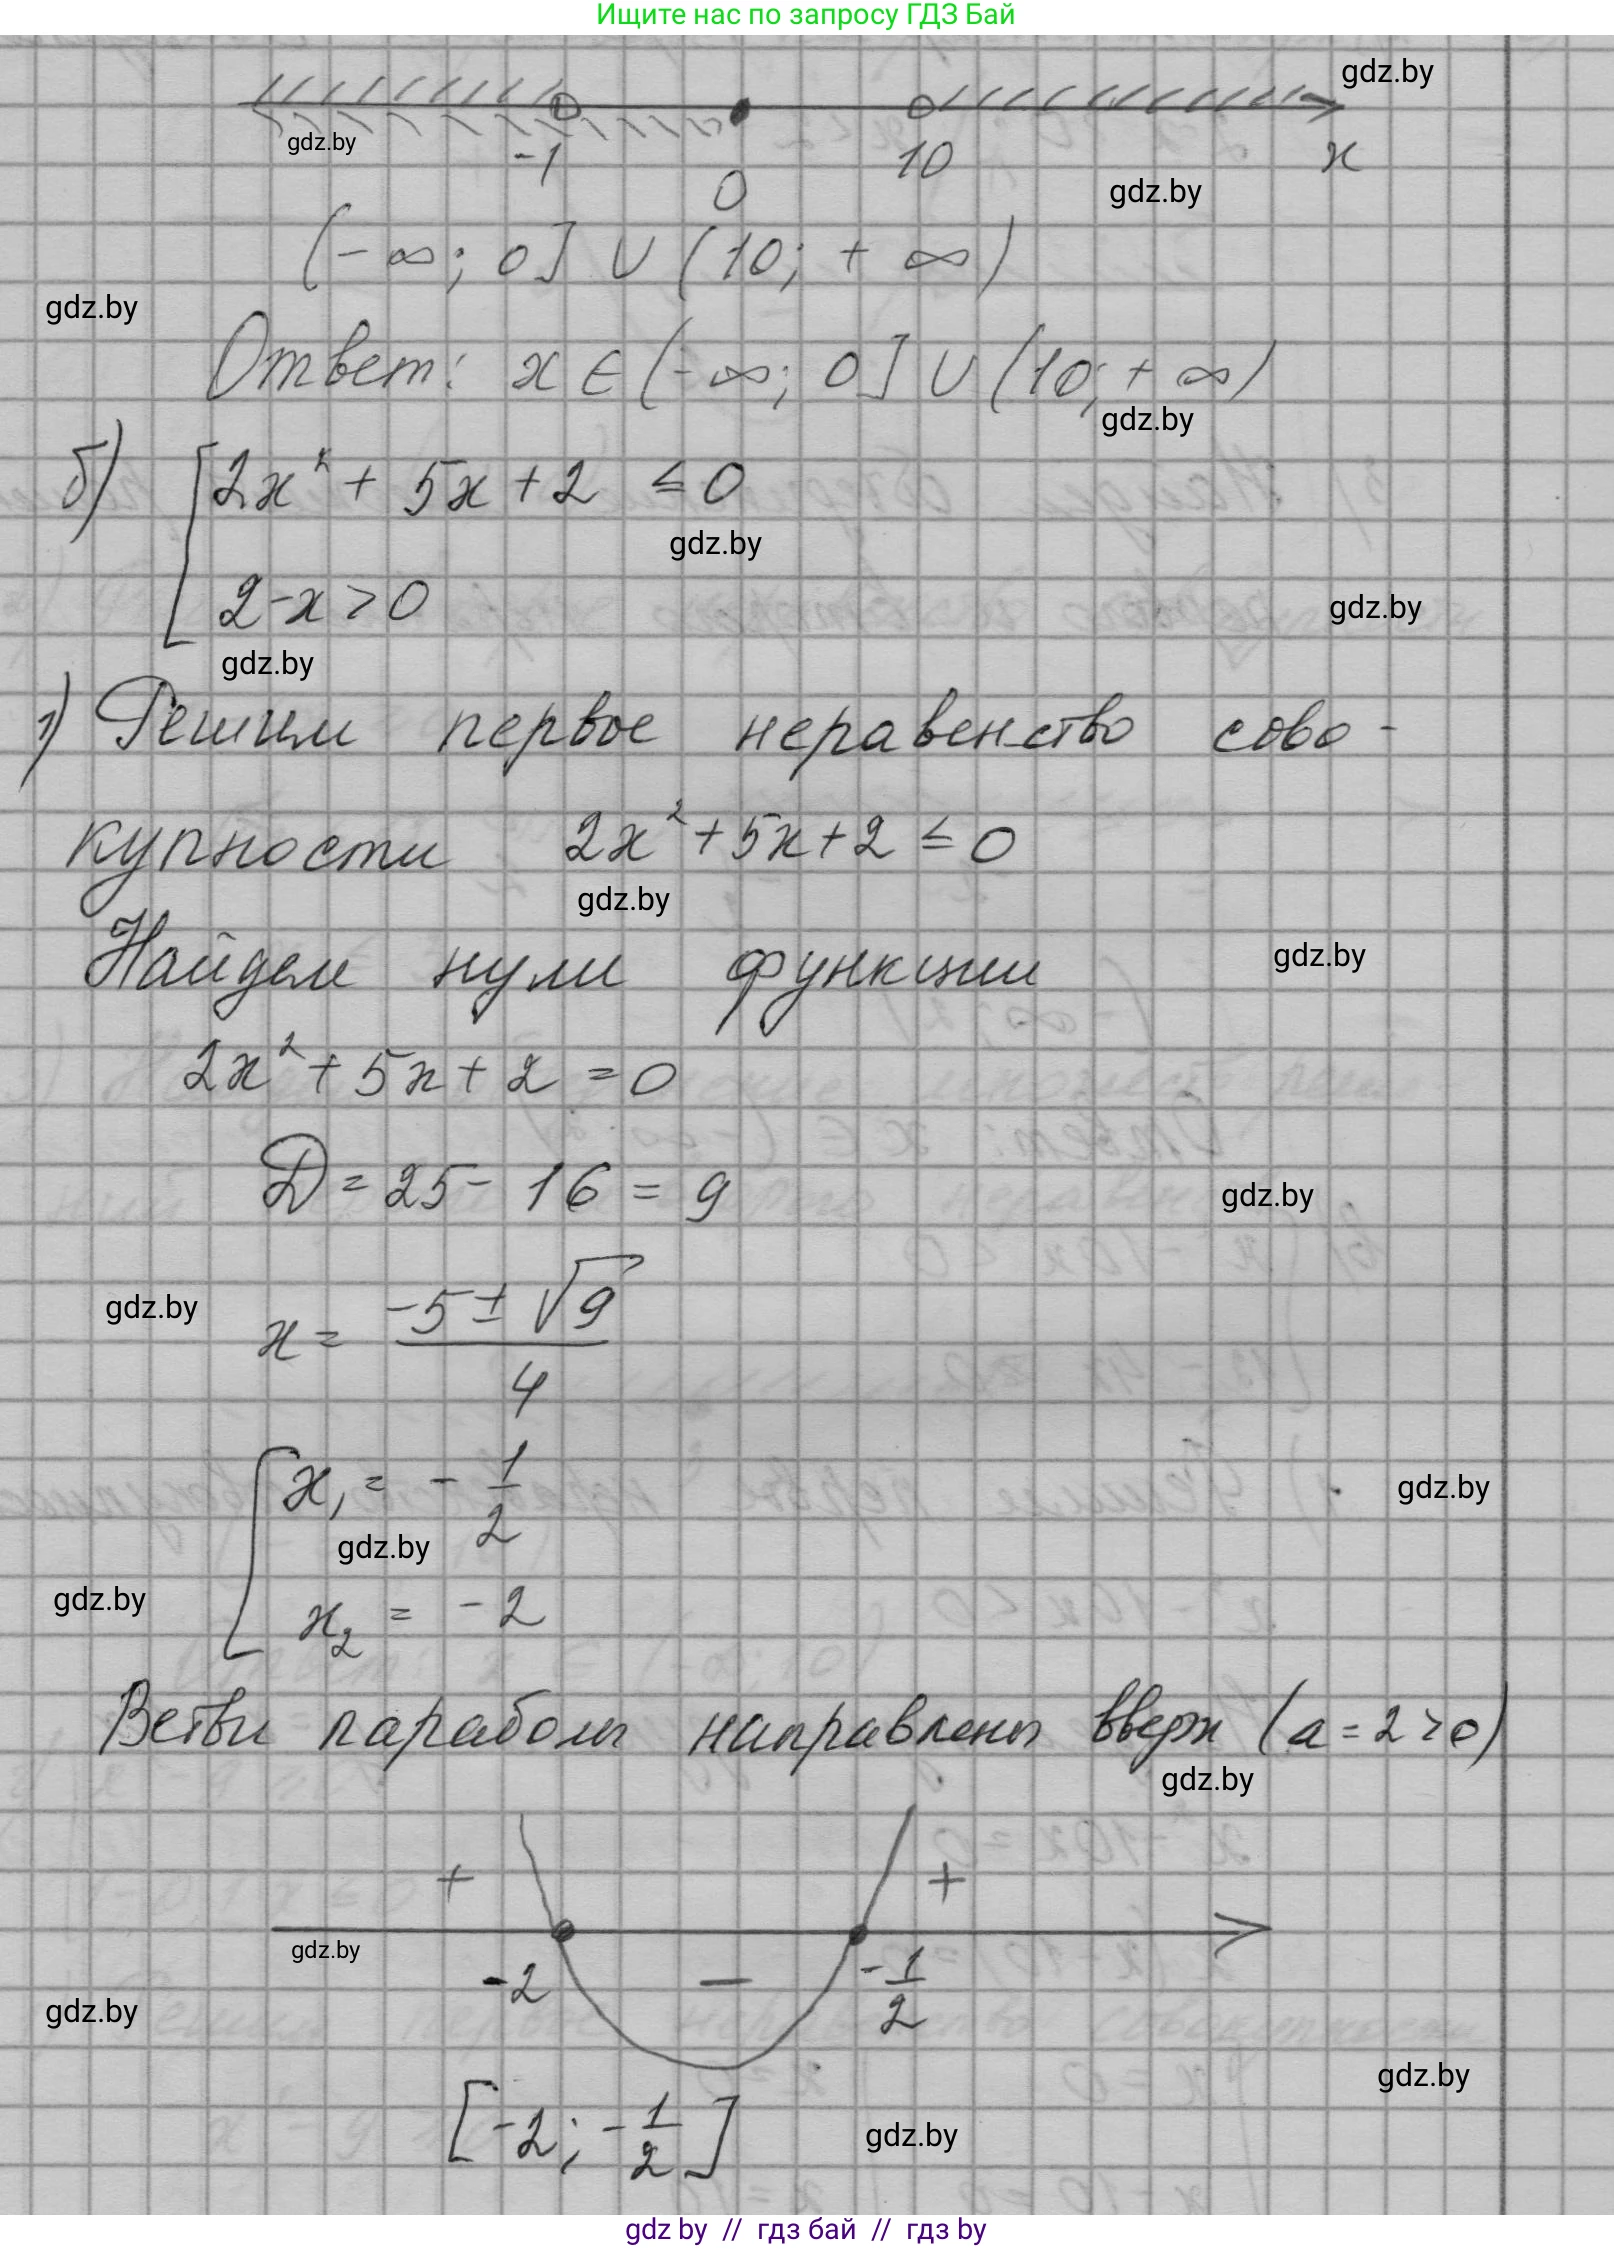 Ищите нас по запросу ГДЗ Бай
gdz.by
-1 0 10 x
gdz.by
gdz.by
(-∞; 0] ∪ (10; +∞)
gdz.by
Ответ: x ∈ (-∞; 0] ∪ (10; +∞)
gdz.by
б) [ 2x² + 5x + 2 ≤ 0
gdz.by
2-x > 0
gdz.by
gdz.by
1) Решим первое неравенство сово-
купности 2x² + 5x + 2 ≤ 0
gdz.by
Найдем нули функции
gdz.by
2x² + 5x + 2 = 0
D = 25 - 16 = 9
gdz.by
gdz.by
x = (-5 ± √9)/4
[ x₁ = -1/2
gdz.by
gdz.by
gdz.by
x₂ = -2
Ветви параболы направлены вверх (a = 2 > 0)
gdz.by
+ +
gdz.by
-2 - -1/2
gdz.by
gdz.by
[-2; -1/2]
gdz.by
gdz by // гдз бай // гдз by